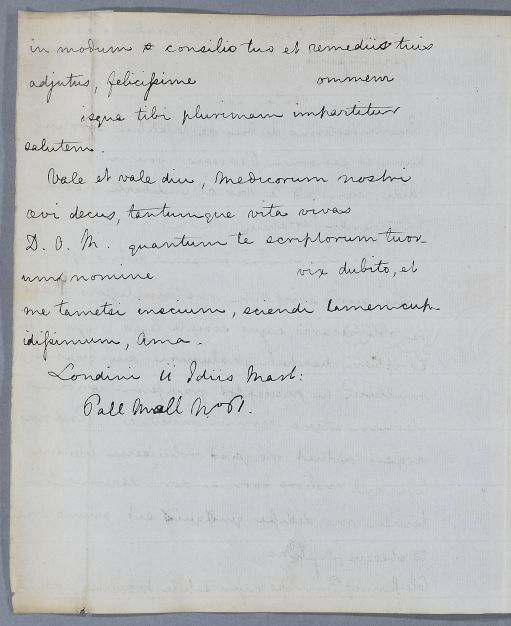 in modum & consilio tuo et remediis tuis
adjutus, felicissime ommem
isque tibi plurimam impartitur
salutem.
Vale et vale diu, medicorum nostri
ævi decus, tantumque vita vivas
D. O. M. quantum te scriptorum tuor-
um nomine vix dubito, et
me tametsi inscium, sciendi tamen cup-
idissimum, Ama.
Londini Idiis Mart:
Pall Mall